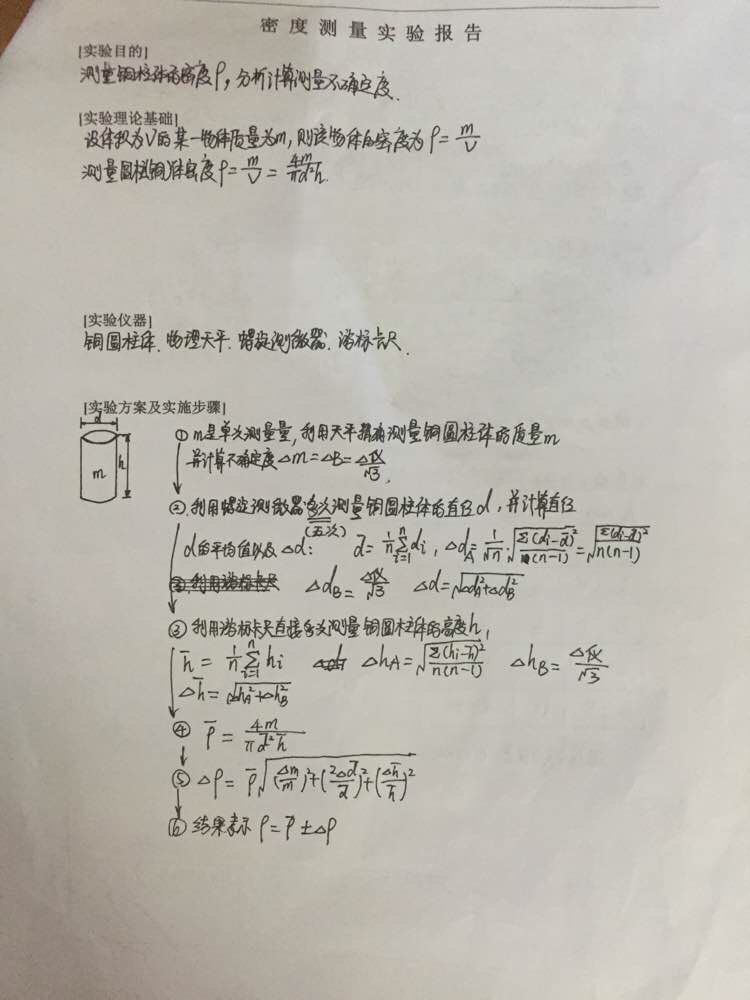 密度测量实验报告
[实验目的]
测量铜柱体的密度ρ，分析计算测量不确定度.
[实验理论基础]
设体积为V的某一物体质量为m，则该物体的密度为ρ=m/V
测量圆柱铜体密度ρ=m/V=4m/πd²h.
[实验仪器]
铜圆柱体、物理天平、螺旋测微器、游标卡尺.
[实验方案及实施步骤]
d
h
m
① m是单次测量量，利用天平 测量铜圆柱体的质量m
并计算不确定度Δm=ΔB=Δ仪/√3.
② 利用螺旋测微器多次测量铜圆柱体的直径d，并计算直径
(五次)
d的平均值以及Δd： d̄=1/n Σ(i=1→n) di，Δd_A=1/√n·√(Σ(di-d̄)²/(n-1))=√(Σ(di-d̄)²/n(n-1))
Δd_B=Δ仪/√3 Δd=√(Δd_A²+Δd_B²)
③ 利用游标卡尺直接多次测量铜圆柱体的高度h，
h̄=1/n Σ(i=1→n) hi Δh_A=√(Σ(hi-h̄)²/n(n-1)) Δh_B=Δ仪/√3
Δh̄=√(Δh_A²+Δh_B²)
④ ρ̄=4m/πd̄²h̄
⑤ Δρ=ρ̄√((Δm/m)²+(2Δd̄/d̄)²+(Δh̄/h̄)²)
⑥ 结果表示 ρ=ρ̄±Δρ